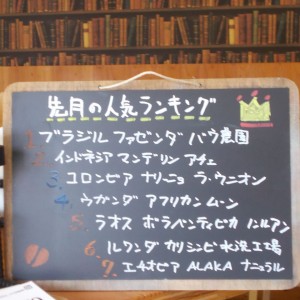 先月の人気ランキング
1. ブラジル ファゼンダ バウ農園
2. インドネシア マンデリン アチェ
3. コロンビア ナリーニョ ラ・ウニオン
4. ウガンダ アフリカン ムーン
5. ラオス ボラベンティピカ ノンルアン
6. ルワンダ カリシンビ 水洗工場
7. エチオピア ALAKA ナチュラル